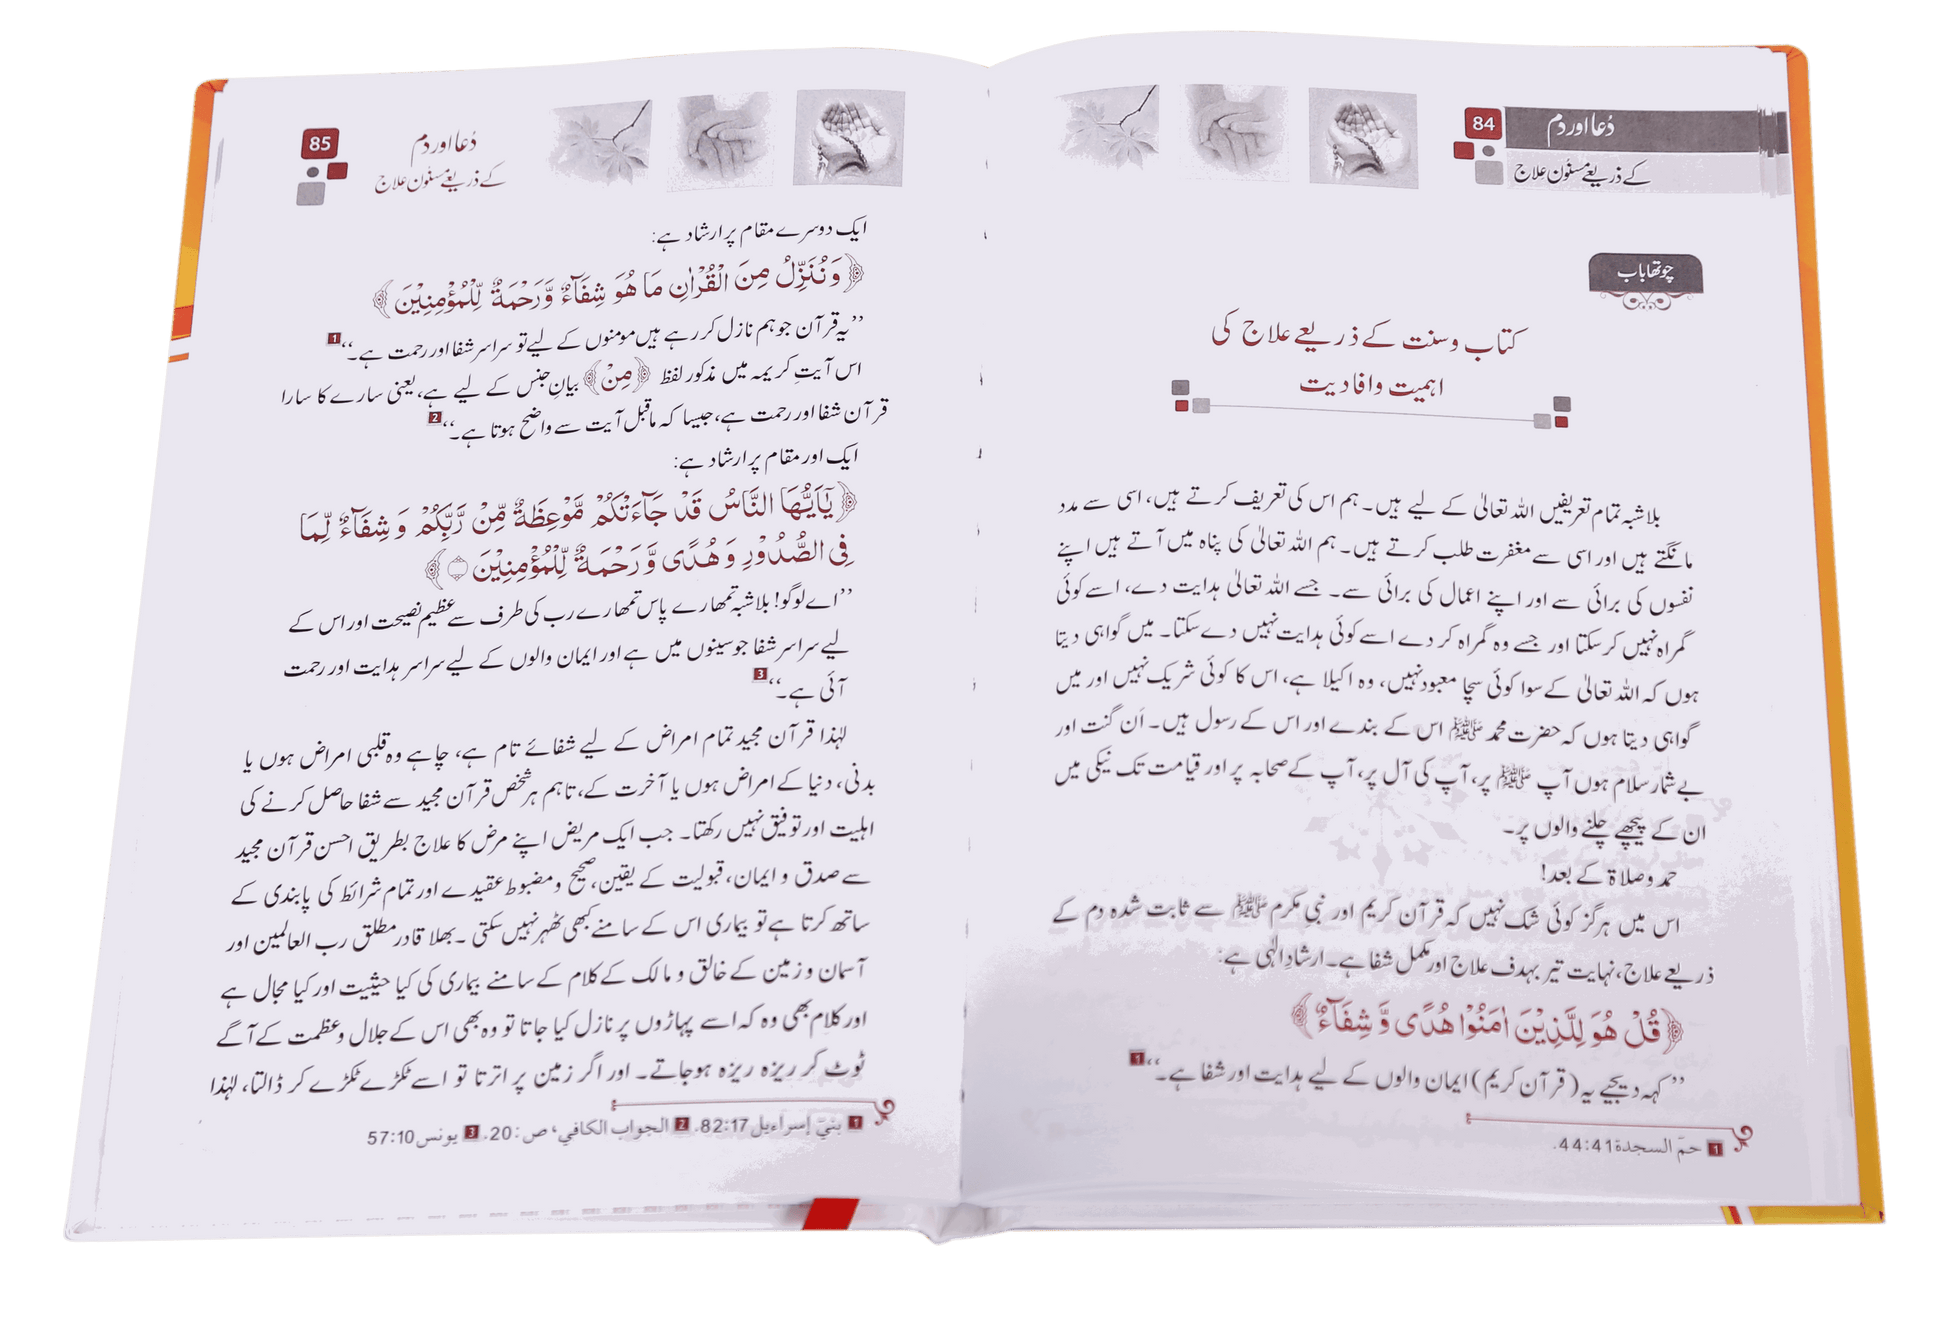 84
دُعا اور دم
کے ذریعے مسنُون علاج
چوتھا باب
کتاب و سنت کے ذریعے علاج کی
اہمیت و افادیت
بلاشبہ تمام تعریفیں اللہ تعالیٰ کے لیے ہیں۔ ہم اس کی تعریف کرتے ہیں، اسی سے مدد
مانگتے ہیں اور اسی سے مغفرت طلب کرتے ہیں۔ ہم اللہ تعالیٰ کی پناہ میں آتے ہیں اپنے
نفسوں کی برائی سے اور اپنے اعمال کی برائی سے۔ جسے اللہ تعالیٰ ہدایت دے، اسے کوئی
گمراہ نہیں کرسکتا اور جسے وہ گمراہ کر دے اسے کوئی ہدایت نہیں دے سکتا۔ میں گواہی دیتا
ہوں کہ اللہ تعالیٰ کے سوا کوئی سچا معبود نہیں، وہ اکیلا ہے، اس کا کوئی شریک نہیں اور میں
گواہی دیتا ہوں کہ حضرت محمد ﷺ اس کے بندے اور اس کے رسول ہیں۔ اَن گنت اور
بے شمار سلام ہوں آپ ﷺ پر، آپ کی آل پر، آپ کے صحابہ پر اور قیامت تک نیکی میں
ان کے پیچھے چلنے والوں پر۔
حمد و صلاۃ کے بعد!
اس میں ہرگز کوئی شک نہیں کہ قرآن کریم اور نبیِ مکرم ﷺ سے ثابت شدہ دم کے
ذریعے علاج، نہایت تیر بہدف علاج اور مکمل شفا ہے۔ ارشادِ الٰہی ہے:
﴿قُلْ هُوَ لِلَّذِيْنَ اٰمَنُوْا هُدًى وَّ شِفَآءٌ﴾
’’کہہ دیجیے یہ (قرآن کریم) ایمان والوں کے لیے ہدایت اور شفا ہے۔‘‘ 1
1 حمّ السجدة 44:41.
85
دُعا اور دم
کے ذریعے مسنُون علاج
ایک دوسرے مقام پر ارشاد ہے:
﴿وَنُنَزِّلُ مِنَ الْقُرْاٰنِ مَا هُوَ شِفَآءٌ وَّرَحْمَةٌ لِّلْمُؤْمِنِيْنَ﴾
’’یہ قرآن جو ہم نازل کر رہے ہیں مومنوں کے لیے تو سراسر شفا اور رحمت ہے۔‘‘ 1
اس آیتِ کریمہ میں مذکور لفظ ﴿مِنْ﴾ بیانِ جنس کے لیے ہے، یعنی سارے کا سارا
قرآن شفا اور رحمت ہے، جیسا کہ ماقبل آیت سے واضح ہوتا ہے۔‘‘ 2
ایک اور مقام پر ارشاد ہے:
﴿يٰٓاَيُّهَا النَّاسُ قَدْ جَآءَتْكُمْ مَّوْعِظَةٌ مِّنْ رَّبِّكُمْ وَ شِفَآءٌ لِّمَا
فِى الصُّدُوْرِ وَ هُدًى وَّ رَحْمَةٌ لِّلْمُؤْمِنِيْنَ ۝﴾
’’اے لوگو! بلاشبہ تمھارے پاس تمھارے رب کی طرف سے عظیم نصیحت اور اس کے
لیے سراسر شفا جو سینوں میں ہے اور ایمان والوں کے لیے سراسر ہدایت اور رحمت
آئی ہے۔‘‘ 3
لہٰذا قرآن مجید تمام امراض کے لیے شفائے تام ہے، چاہے وہ قلبی امراض ہوں یا
بدنی، دنیا کے امراض ہوں یا آخرت کے، تاہم ہر شخص قرآن مجید سے شفا حاصل کرنے کی
اہلیت اور توفیق نہیں رکھتا۔ جب ایک مریض اپنے مرض کا علاج بطریق احسن قرآن مجید
سے صدق و ایمان، قبولیت کے یقین، صحیح و مضبوط عقیدے اور تمام شرائط کی پابندی کے
ساتھ کرتا ہے تو بیماری اس کے سامنے کبھی ٹھہر نہیں سکتی۔ بھلا قادر مطلق رب العالمین اور
آسمان و زمین کے خالق و مالک کے کلام کے سامنے بیماری کی کیا حیثیت اور کیا مجال ہے
اور کلام بھی وہ کہ اسے پہاڑوں پر نازل کیا جاتا تو وہ بھی اس کے جلال و عظمت کے آگے
ٹوٹ کر ریزہ ریزہ ہوجاتے۔ اور اگر زمین پر اترتا تو اسے ٹکڑے ٹکڑے کر ڈالتا، لہٰذا
1 بنيٓ إسرآءيل 82:17. 2 الجواب الكافي، ص: 20. 3 يونس 57:10